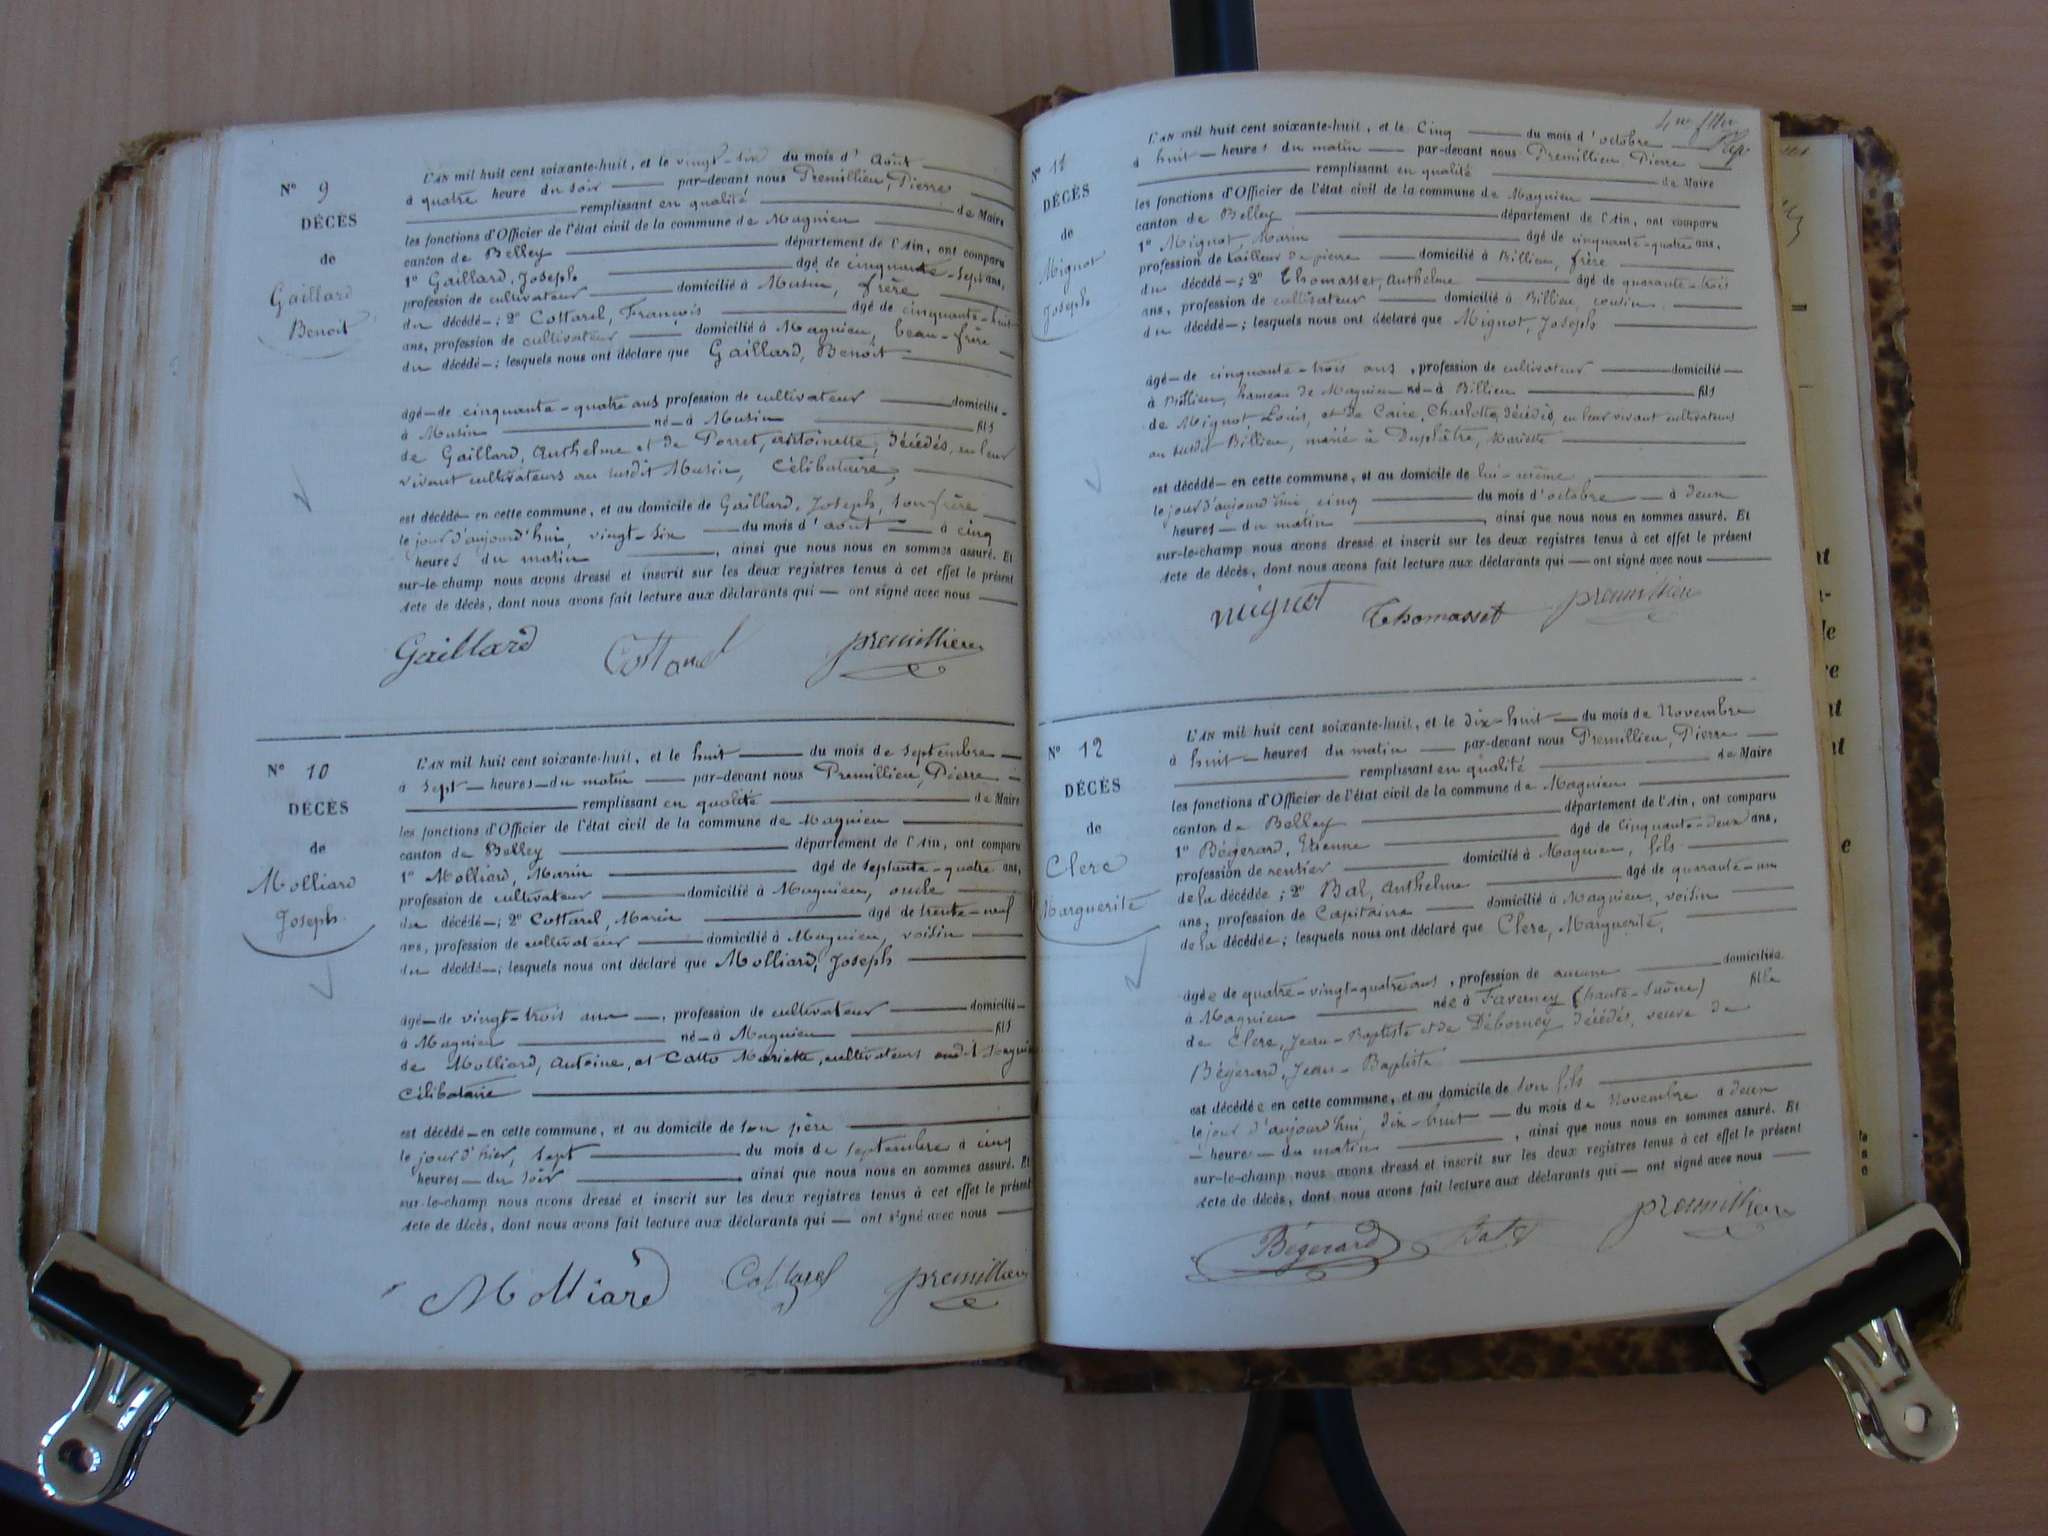 N° 9
DÉCÈS
de
Gaillard
Benoit
L'AN mil huit cent soixante-huit, et le vingt-six du mois d'Août
à quatre heure du soir par-devant nous Premillieu, Pierre
remplissant en qualité de Maire
les fonctions d'Officier de l'état civil de la commune de Magnieu
canton de Belley département de l'Ain, ont comparu
1° Gaillard, Joseph âgé de cinquante-sept ans,
profession de cultivateur domicilié à Musin, frère
du décédé ; 2° Cottarel, François âgé de cinquante-huit
ans, profession de cultivateur domicilié à Magnieu, beau-frère
du décédé ; lesquels nous ont déclaré que Gaillard, Benoit
âgé de cinquante-quatre ans profession de cultivateur domicilié
à Musin né à Musin fils
de Gaillard, Anthelme et de Porret, Antoinette, décédés, en leur
vivant cultivateurs au susdit Musin, Célibataire,
est décédé en cette commune, et au domicile de Gaillard, Joseph, son frère
le jour d'aujourd'hui, vingt-six du mois d'août à cinq
heures du matin , ainsi que nous nous en sommes assuré. Et
sur-le-champ nous avons dressé et inscrit sur les deux registres tenus à cet effet le présent
Acte de décès, dont nous avons fait lecture aux déclarants qui ont signé avec nous
Gaillard Cottarel premillieu
N° 10
DÉCÈS
de
Molliard
Joseph
L'AN mil huit cent soixante-huit, et le huit du mois de septembre
à sept heures du matin par-devant nous Premillieu, Pierre
remplissant en qualité de Maire
les fonctions d'Officier de l'état civil de la commune de Magnieu
canton de Belley département de l'Ain, ont comparu
1° Molliard, Marin âgé de septante-quatre ans,
profession de cultivateur domicilié à Magnieu, oncle
du décédé ; 2° Cottarel, Marin âgé de trente-neuf
ans, profession de cultivateur domicilié à Magnieu, voisin
du décédé ; lesquels nous ont déclaré que Molliard, Joseph
âgé de vingt-trois ans , profession de cultivateur domicilié
à Magnieu né à Magnieu fils
de Molliard, Antoine, et Catto Mariette, cultivateurs audit Magnieu
Célibataire
est décédé en cette commune, et au domicile de son père
le jour d'hier, sept du mois de septembre à cinq
heures du soir , ainsi que nous nous en sommes assuré. Et
sur-le-champ nous avons dressé et inscrit sur les deux registres tenus à cet effet le présent
Acte de décès, dont nous avons fait lecture aux déclarants qui ont signé avec nous
Molliard Cottarel premillieu
N° 11
DÉCÈS
de
Mignot
Joseph
L'AN mil huit cent soixante-huit, et le Cinq du mois d'octobre
à huit heures du matin par-devant nous Premillieu Pierre
remplissant en qualité de Maire
les fonctions d'Officier de l'état civil de la commune de Magnieu
canton de Belley département de l'Ain, ont comparu
1° Mignot, Marin âgé de cinquante-quatre ans,
profession de tailleur de pierre domicilié à Billieu, frère
du décédé ; 2° Thomasset, Anthelme âgé de quarante-trois
ans, profession de cultivateur domicilié à Billieu cousin
du décédé ; lesquels nous ont déclaré que Mignot, Joseph
âgé de cinquante-trois ans , profession de cultivateur domicilié
à Billieu, hameau de Magnieu né à Billieu fils
de Mignot, Louis, et de Caire, Charlotte, décédés, en leur vivant cultivateurs
au susdit Billieu, marié à Duplâtre, Mariette
est décédé en cette commune, et au domicile de lui-même
le jour d'aujourd'hui cinq du mois d'octobre à deux
heures du matin , ainsi que nous nous en sommes assuré. Et
sur-le-champ nous avons dressé et inscrit sur les deux registres tenus à cet effet le présent
Acte de décès, dont nous avons fait lecture aux déclarants qui ont signé avec nous
mignot Thomasset premillieu
N° 12
DÉCÈS
de
Clerc
Marguerite
L'AN mil huit cent soixante-huit, et le dix-huit du mois de Novembre
à huit heures du matin par-devant nous Premillieu, Pierre
remplissant en qualité de Maire
les fonctions d'Officier de l'état civil de la commune de Magnieu
canton de Belley département de l'Ain, ont comparu
1° Bégerard, Etienne âgé de cinquante-deux ans,
profession de rentier domicilié à Magnieu, fils
de la décédée ; 2° Bal, Anthelme âgé de quarante-un
ans, profession de Capitaine domicilié à Magnieu, voisin
de la décédée ; lesquels nous ont déclaré que Clerc, Marguerite,
âgée de quatre-vingt-quatre ans , profession de aucune domiciliée
à Magnieu née à Faverney (haute-Saône) fille
de Clerc, Jean-Baptiste et de Déborney décédés, veuve de
Bégerard, Jean-Baptiste
est décédée en cette commune, et au domicile de son fils
le jour d'aujourd'hui, dix-huit du mois de Novembre à deux
heures du matin , ainsi que nous nous en sommes assuré. Et
sur-le-champ nous avons dressé et inscrit sur les deux registres tenus à cet effet le présent
Acte de décès, dont nous avons fait lecture aux déclarants qui ont signé avec nous
Bégerard Bal premillieu